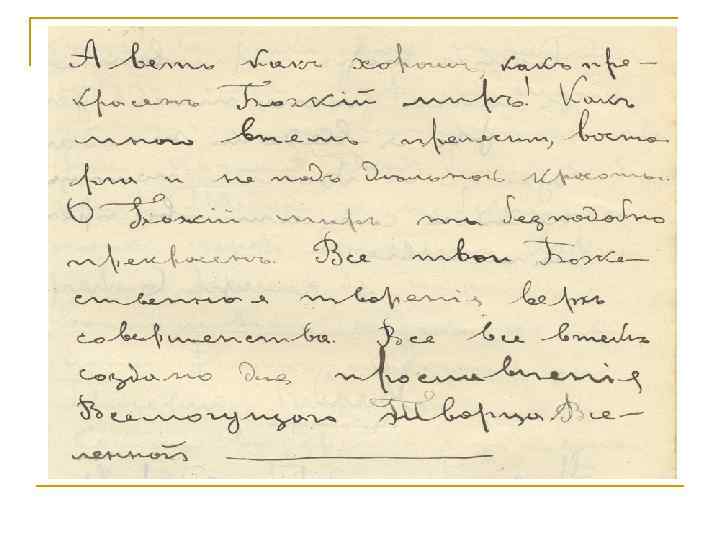 А веть какъ хорошъ, какъ пре-
красенъ Божій миръ! Какъ
много в немъ прелести, восто
рга и не
О Божій миръ ты безподобно
прекрасенъ. Все твои Боже-
ственныя творенія верхъ
совершенства. Все все в тебѣ
создано для прославленія
Всемогущаго Творца Все-
ленной